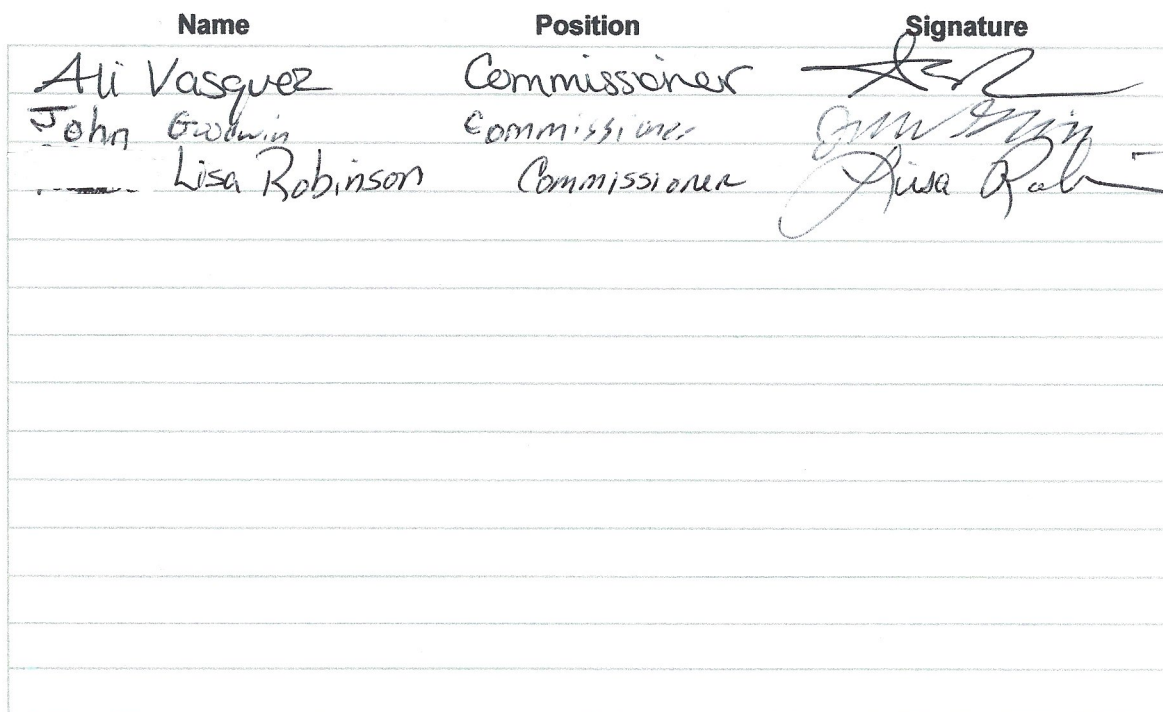 Name Position Signature
Ali Vasquez Commissioner
John Goodwin Commissioner
Lisa Robinson Commissioner Lisa